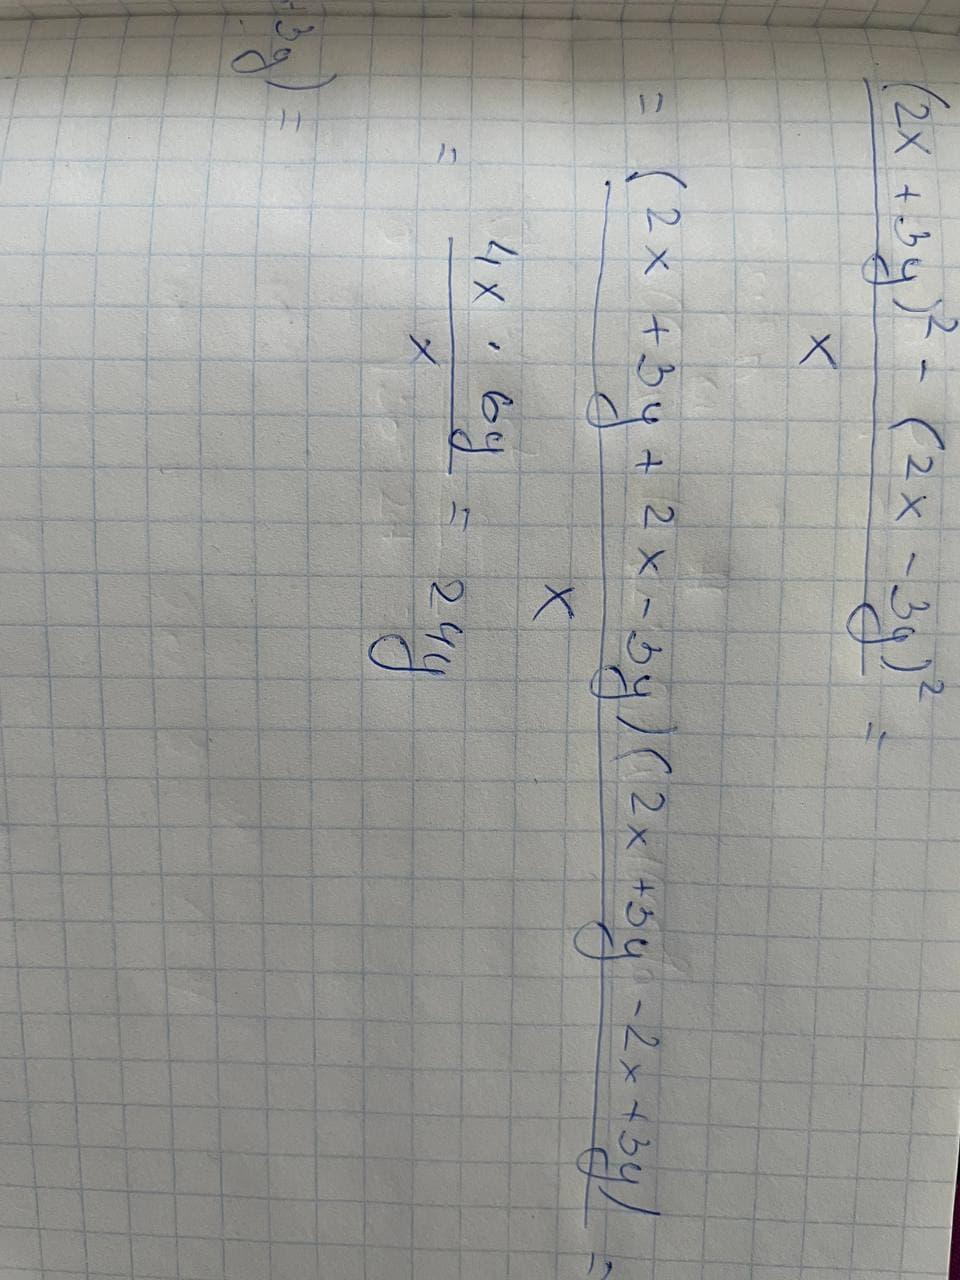 (2x + 3y)² - (2x - 3y)² =
x
= (2x + 3y + 2x - 3y)(2x + 3y - 2x + 3y) =
x
= 4x · 6y = 24y
x
+ 3y) =